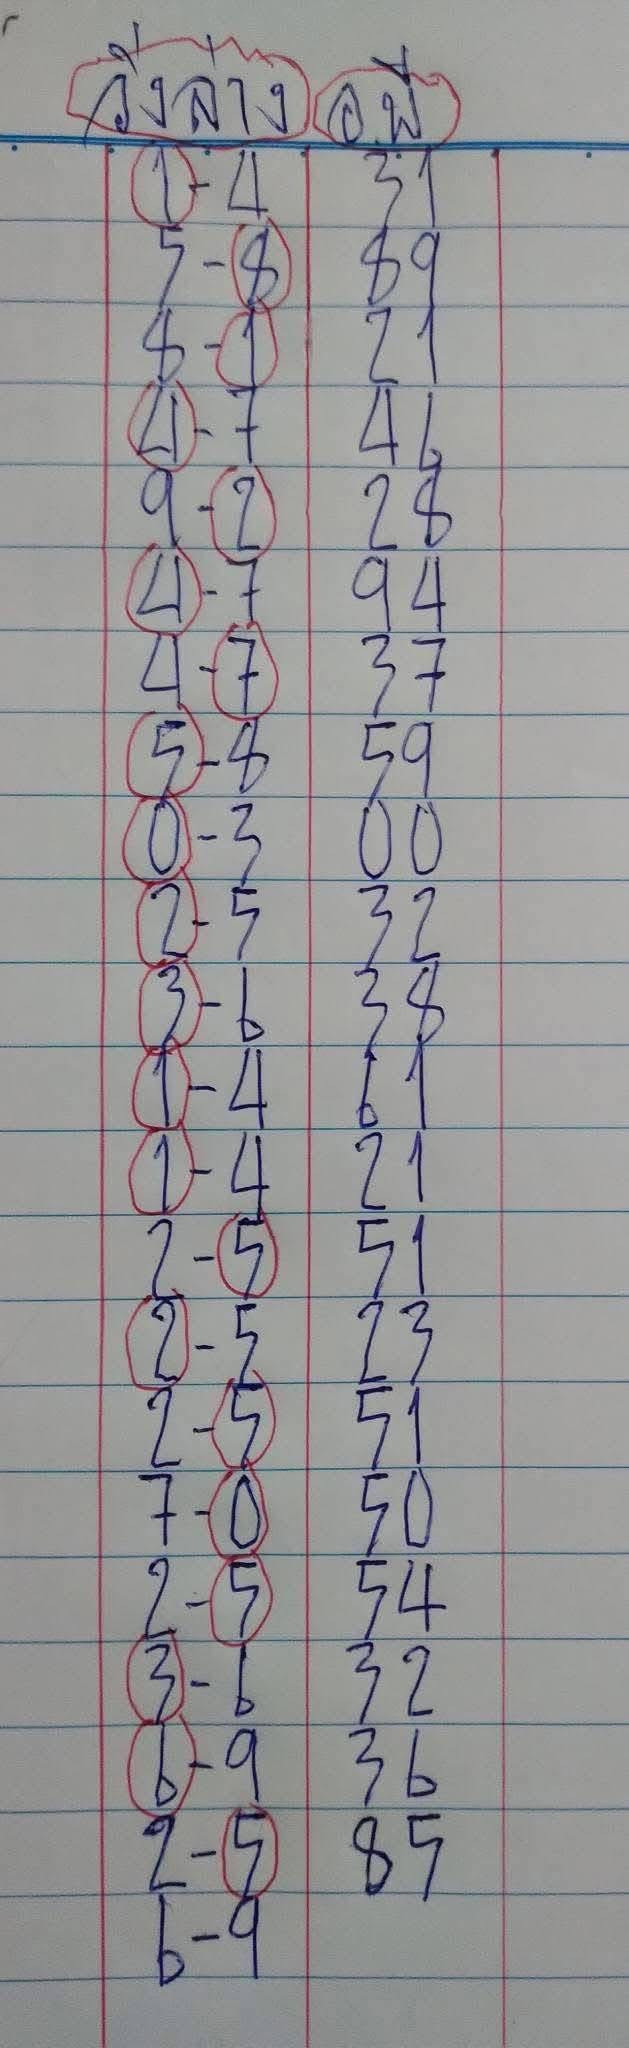 วิ่งล่าง อ.พี่
1-4 31
5-8 89
8-1 21
4-7 46
9-2 28
4-7 94
4-7 37
5-8 59
0-3 00
2-5 32
3-6 38
1-4 61
1-4 21
2-5 51
2-5 23
2-5 51
7-0 50
2-5 54
3-6 32
6-9 36
2-5 85
6-9